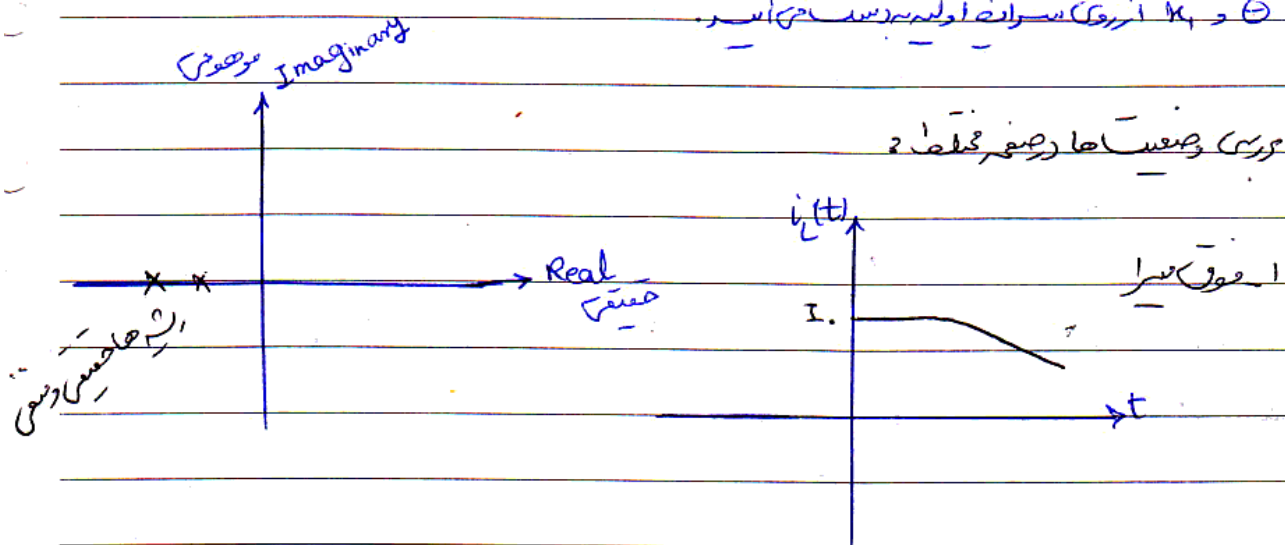 θ و k₁ از روی شرایط اولیه بدست می آیند.
موهومی Imaginary
بررسی وضعیت ها در صفحه مختلط :
i_L(t)
Real
حقیقی
۱_ فوق میرا
I.
ریشه ها حقیقی و منفی
t